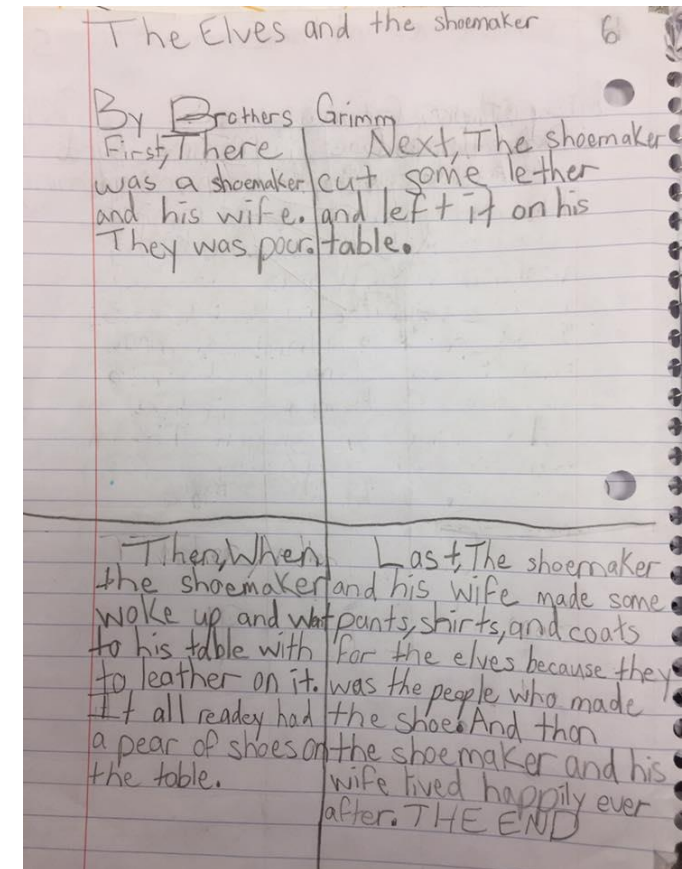 The Elves and the shoemaker
6
By Brothers Grimm
First, There
was a shoemaker
and his wife.
They was pour.
Next, The shoemaker
cut some lether
and left it on his
table.
Then, When
the shoemaker
woke up and wat
to his table with
to leather on it.
It all readey had
a pear of shoes on
the table.
Last, The shoemaker
and his wife made some
pants, shirts, and coats
for the elves because they
was the people who made
the shoe. And than
the shoemaker and his
wife lived happily ever
after. THE END